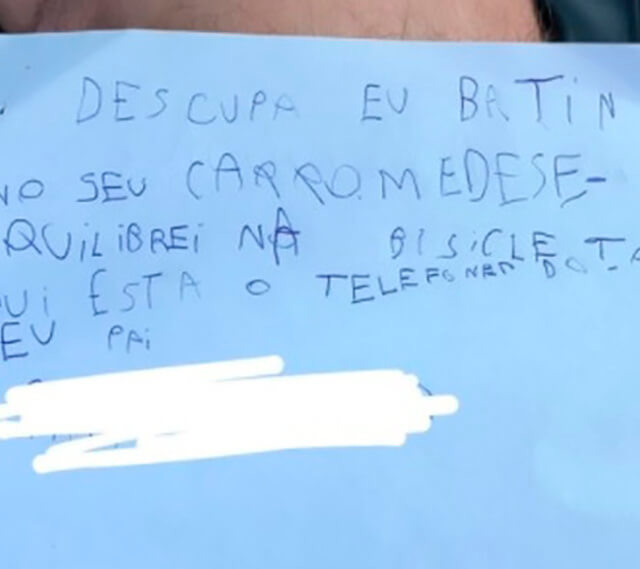 DESCUPA EU BATiN
NO SEU CARRO. MEDESE-
QUiLiBREi NA BiSiCLETA
UI ESTA O TELEFONER DO
EU PAi